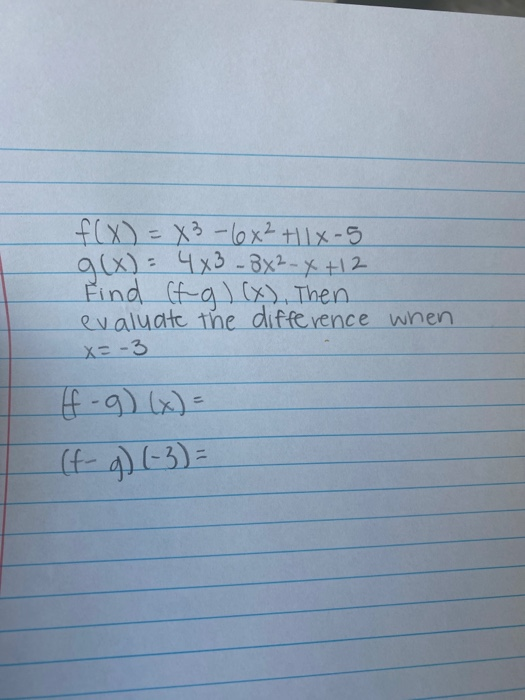 f(x) = x³ - 6x² + 11x - 5
g(x) = 4x³ - 8x² - x + 12
Find (f-g)(x). Then
evaluate the difference when
x = -3
(f - g)(x) =
(f - g)(-3) =